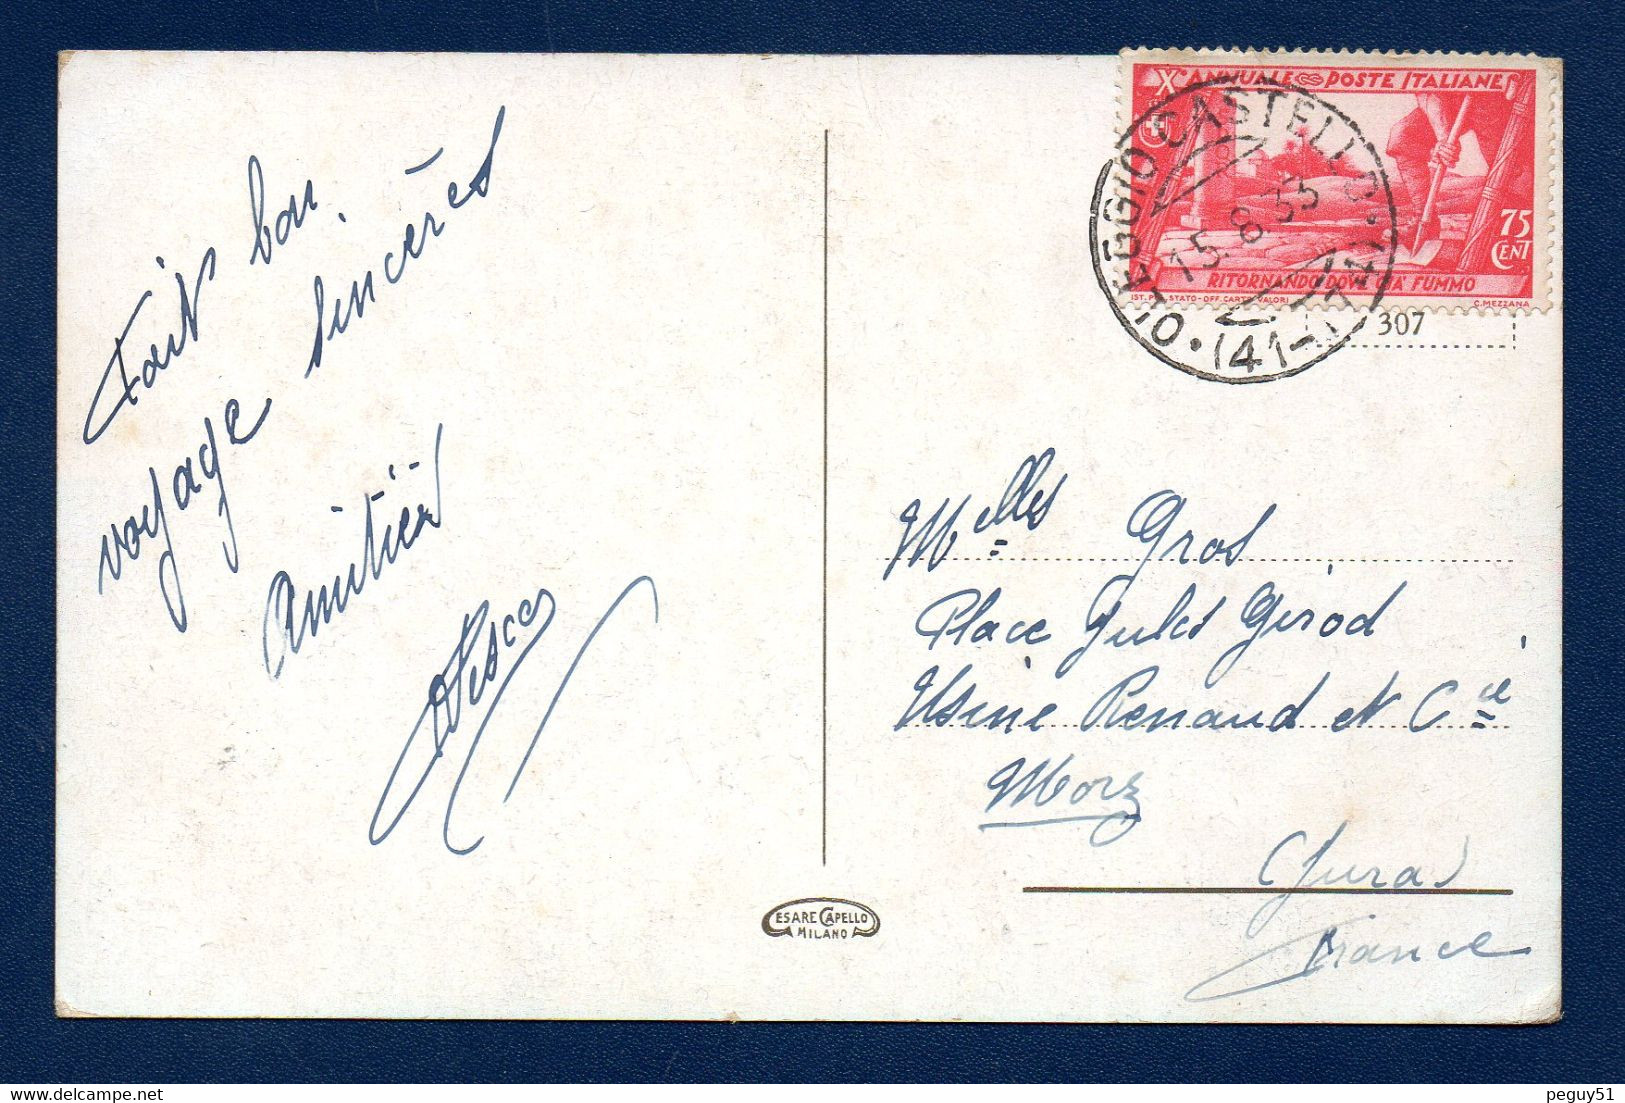 Fait bon
voyage sincères
Amitiés
Xe ANNUALE POSTE ITALIANE
75
CENT
RITORNANDO DOVE GIÀ FUMMO
IST. POL. STATO-OFF. CARTE VALORI
C. MEZZANA
OLEGGIO CASTELLO
15 8 33
307
Melles Gros
Place Jules Gerod
Usine Renaud et Cie
Morez
(Jura)
France
CESARE CAPELLO
MILANO
peguy51